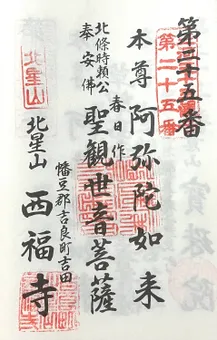 第二十五番
第二十五番
本尊阿弥陀如来
春日作
北條時頼公
奉安佛
聖観世音菩薩
幡豆郡吉良町吉田
北星山
北星山
西福寺